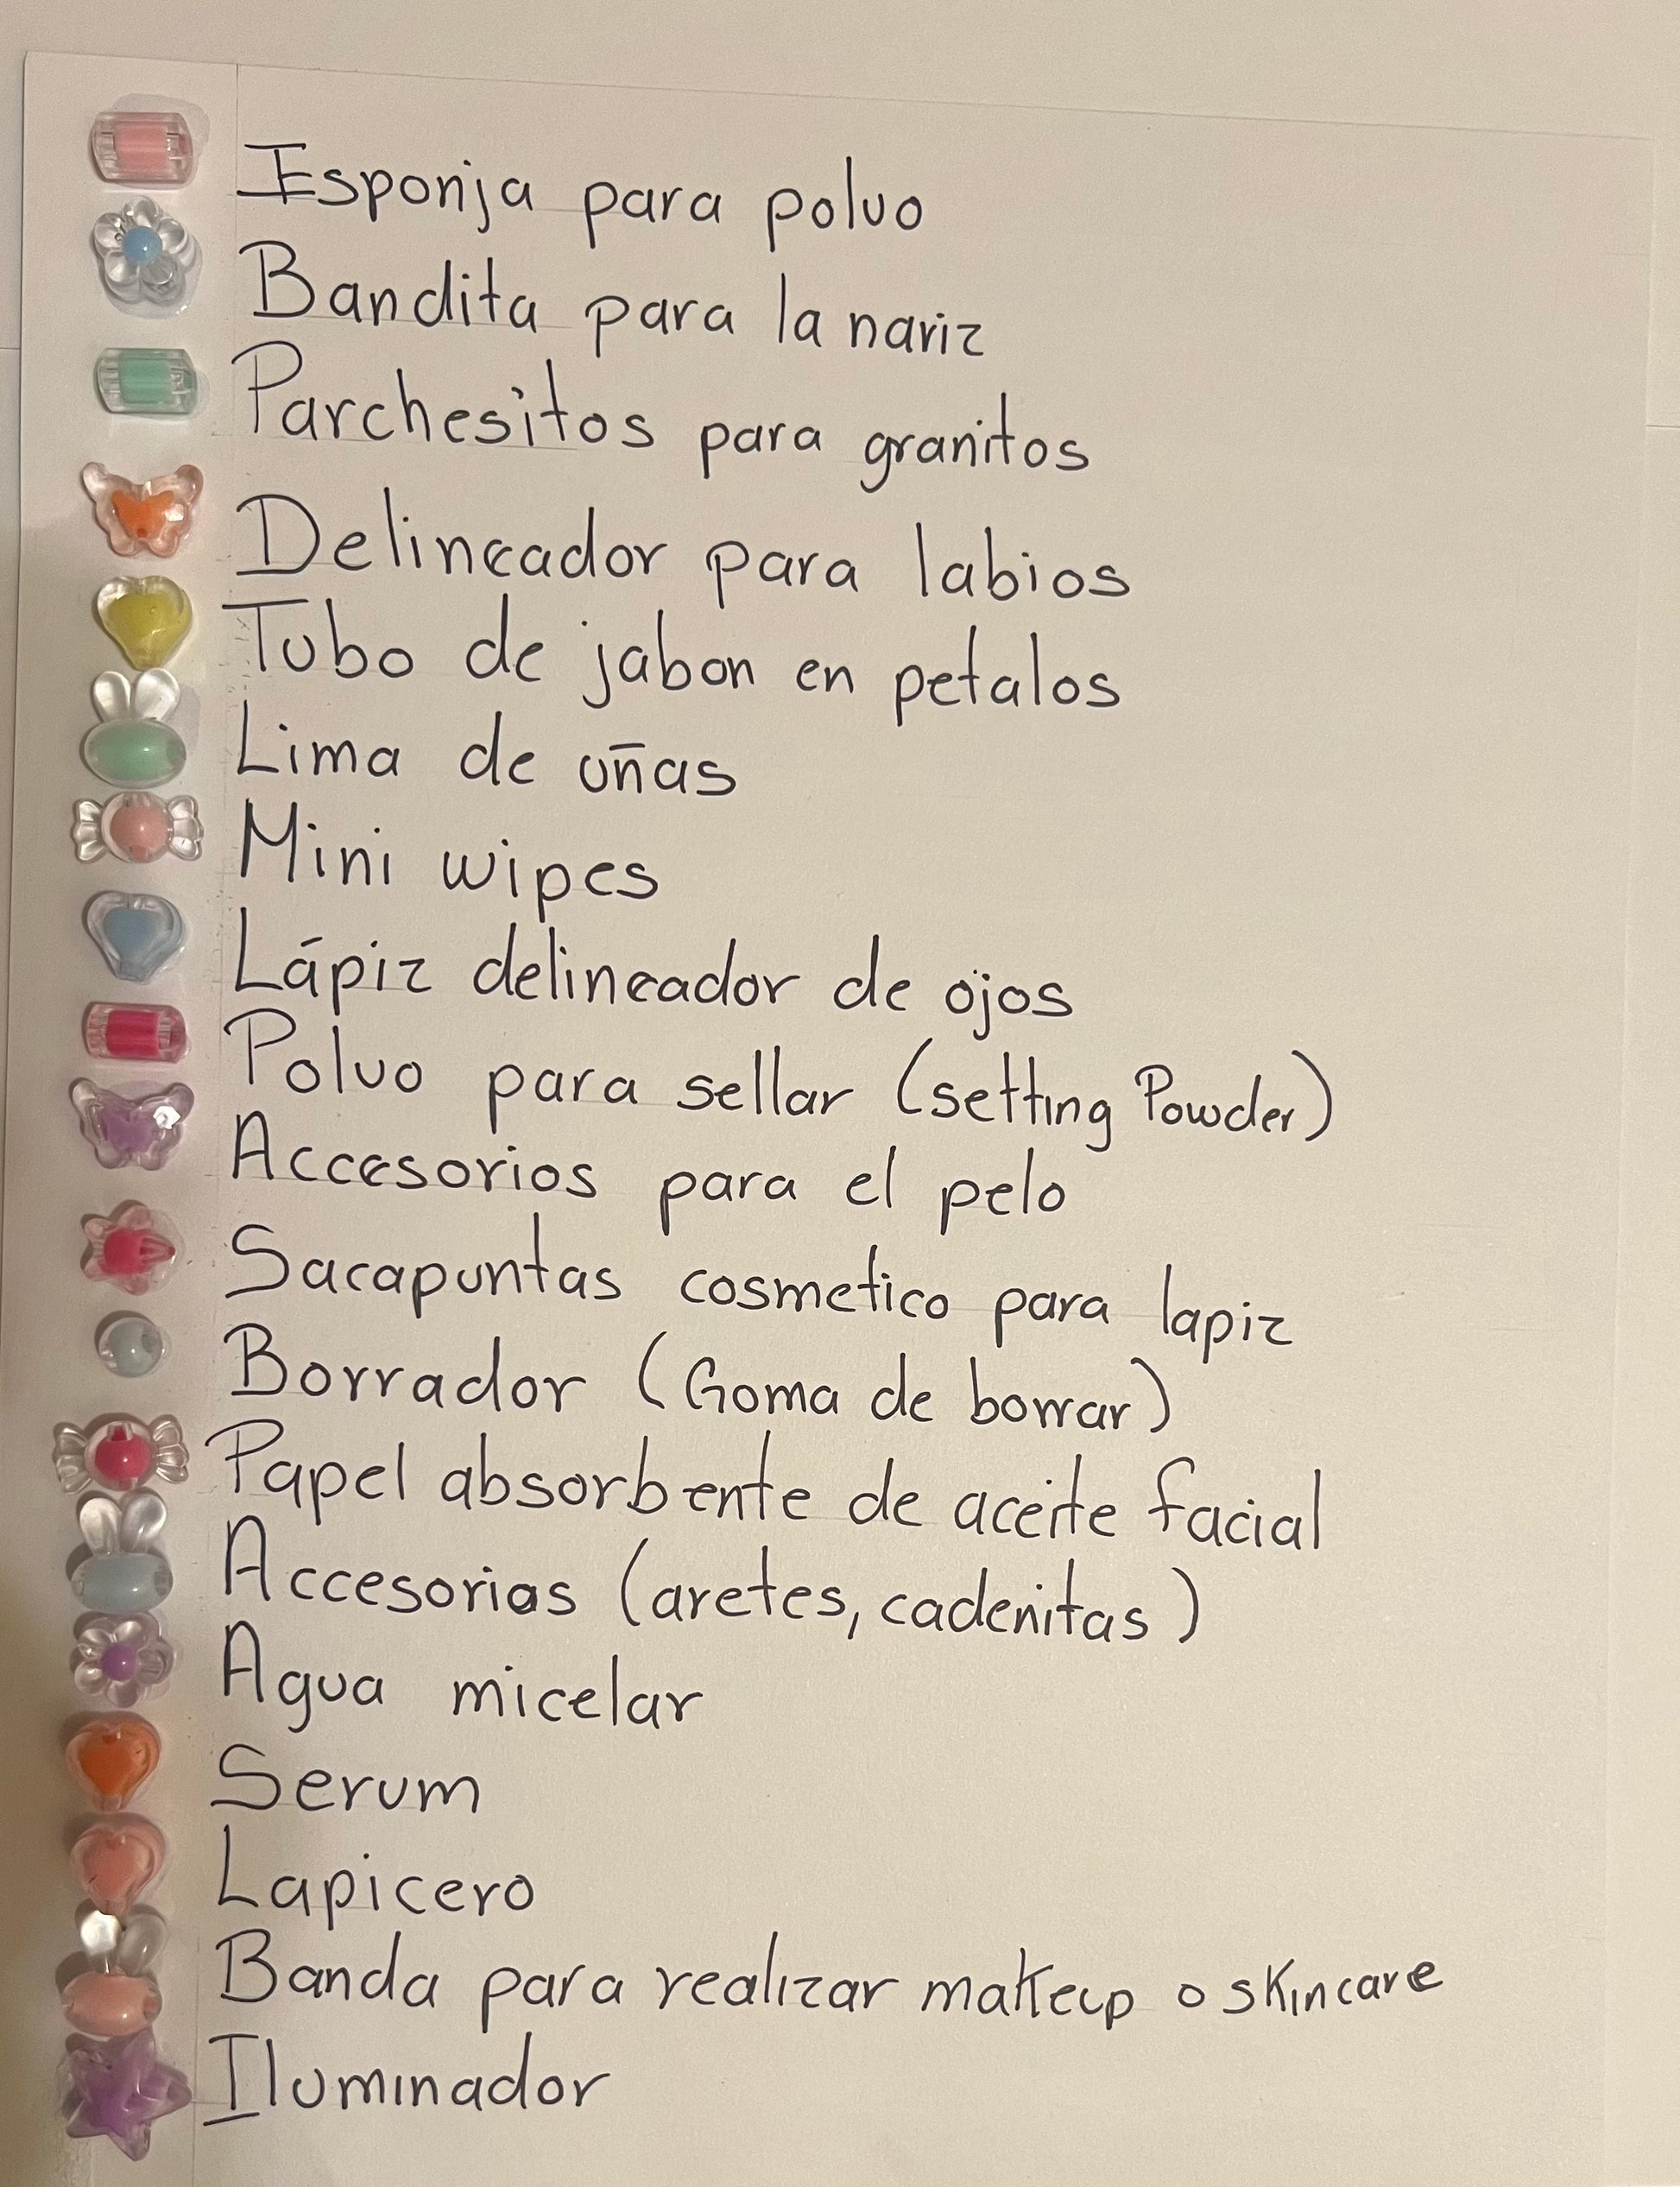 Esponja para polvo
Bandita para la nariz
Parchesitos para granitos
Delineador para labios
Tubo de jabon en petalos
Lima de uñas
Mini wipes
Lápiz delineador de ojos
Polvo para sellar (setting Powder)
Accesorios para el pelo
Sacapuntas cosmetico para lapiz
Borrador (Goma de borrar)
Papel absorbente de aceite facial
Accesorios (aretes, cadenitas)
Agua micelar
Serum
Lapicero
Banda para realizar makeup o skincare
Iluminador